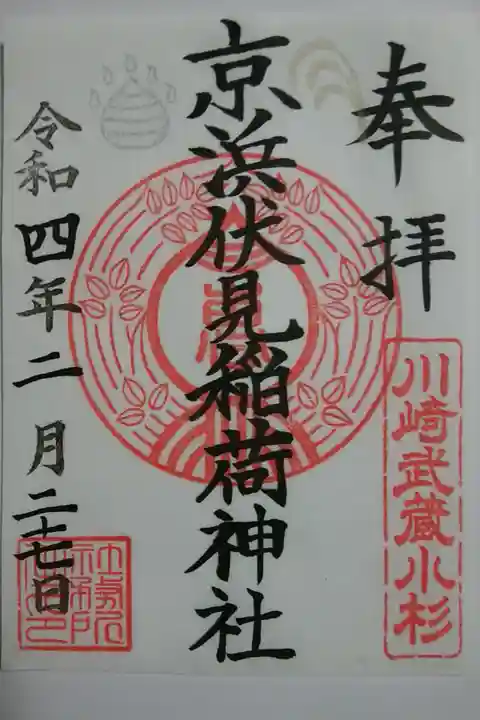 奉拝
川崎武蔵小杉
京浜伏見稲荷神社
令和四年二月二十七日
社務所